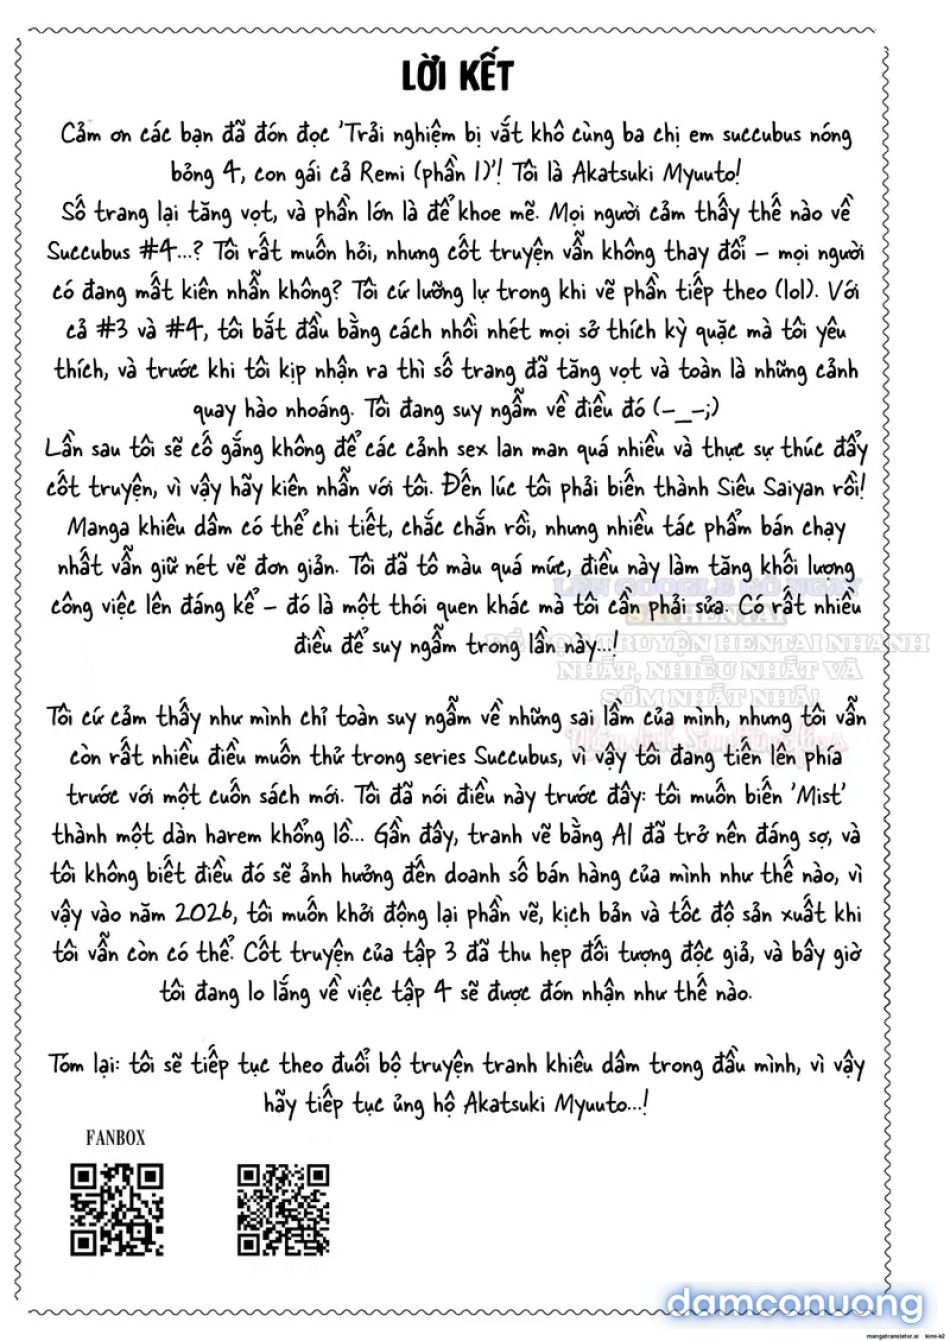 LỜI KẾT
Cảm ơn các bạn đã đón đọc 'Trải nghiệm bị vắt khô cùng ba chị em succubus nóng
bỏng 4, con gái cả Remi (phần 1)'! Tôi là Akatsuki Myuuto!
Số trang lại tăng vọt, và phần lớn là để khoe mẽ. Mọi người cảm thấy thế nào về
Succubus #4...? Tôi rất muốn hỏi, nhưng cốt truyện vẫn không thay đổi – mọi người
có đang mất kiên nhẫn không? Tôi cứ lưỡng lự trong khi vẽ phần tiếp theo (lol). Với
cả #3 và #4, tôi bắt đầu bằng cách nhồi nhét mọi sở thích kỳ quặc mà tôi yêu
thích, và trước khi tôi kịp nhận ra thì số trang đã tăng vọt và toàn là những cảnh
quay hào nhoáng. Tôi đang suy ngẫm về điều đó (-_-;)
Lần sau tôi sẽ cố gắng không để các cảnh sex lan man quá nhiều và thực sự thúc đẩy
cốt truyện, vì vậy hãy kiên nhẫn với tôi. Đến lúc tôi phải biến thành Siêu Saiyan rồi!
Manga khiêu dâm có thể chi tiết, chắc chắn rồi, nhưng nhiều tác phẩm bán chạy
nhất vẫn giữ nét vẽ đơn giản. Tôi đã tô màu quá mức, điều này làm tăng khối lượng
công việc lên đáng kể – đó là một thói quen khác mà tôi cần phải sửa. Có rất nhiều
điều để suy ngẫm trong lần này...!
LÊN GOOGLE GÕ NGAY
HENTAI
ĐỂ ĐỌC TRUYỆN HENTAI NHANH
NHẤT, NHIỀU NHẤT VÀ
SỚM NHẤT NHÁ!
Tôi cứ cảm thấy như mình chỉ toàn suy ngẫm về những sai lầm của mình, nhưng tôi vẫn
còn rất nhiều điều muốn thử trong series Succubus, vì vậy tôi đang tiến lên phía
trước với một cuốn sách mới. Tôi đã nói điều này trước đây: tôi muốn biến 'Mist'
thành một dàn harem khổng lồ... Gần đây, tranh vẽ bằng AI đã trở nên đáng sợ, và
tôi không biết điều đó sẽ ảnh hưởng đến doanh số bán hàng của mình như thế nào, vì
vậy vào năm 2026, tôi muốn khởi động lại phần vẽ, kịch bản và tốc độ sản xuất khi
tôi vẫn còn có thể. Cốt truyện của tập 3 đã thu hẹp đối tượng độc giả, và bây giờ
tôi đang lo lắng về việc tập 4 sẽ được đón nhận như thế nào.
Tóm lại: tôi sẽ tiếp tục theo đuổi bộ truyện tranh khiêu dâm trong đầu mình, vì vậy
hãy tiếp tục ủng hộ Akatsuki Myuuto...!
FANBOX
damconuong
mangatranslator.ai kimi-k2